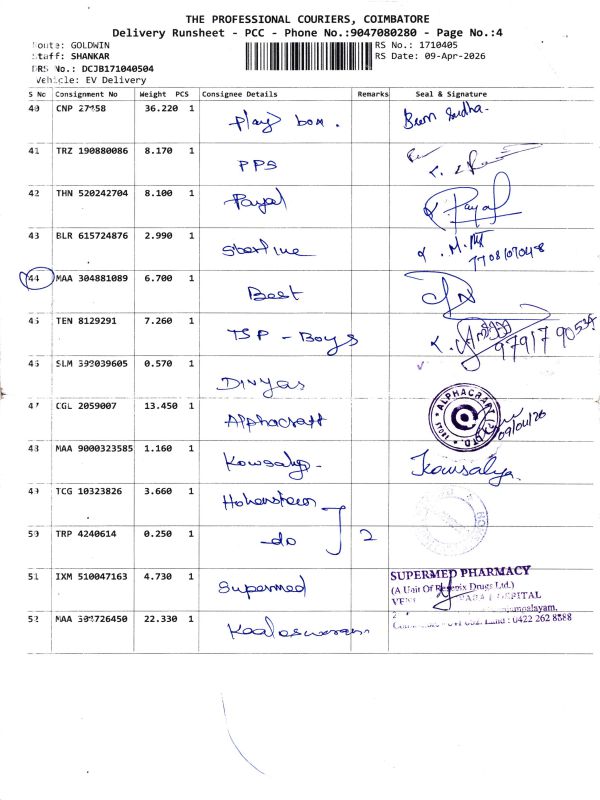 THE PROFESSIONAL COURIERS, COIMBATORE
Delivery Runsheet - PCC - Phone No.:9047080280 - Page No.:4
Route: GOLDWIN RS No.: 1710405
Staff: SHANKAR RS Date: 09-Apr-2026
DRS No.: DCJB171040504
Vehicle: EV Delivery
S No Consignment No Weight PCS Consignee Details Remarks Seal & Signature
40 CNP 36.220 1 Play box.
41 TRZ 190880086 8.170 1 PPS
42 THN 520242704 8.100 1 Payal Payal
43 BLR 615724876 2.990 1 Sterline
44 MAA 304881089 6.700 1 Best
45 TEN 8129291 7.260 1 TSP - Boys
46 SLM 0.570 1 Divyas
47 CGL 2059007 13.450 1 Alphacraft ALPHACRAFT
48 MAA 9000323585 1.160 1 Kowsalya Kowsalya
49 TCG 10323826 3.660 1 Hohenstein
50 TRP 4240614 0.250 1 -do 2
51 IXM 510047163 4.730 1 Supermed SUPERMED PHARMACY
(A Unit Of Drugs Ltd.)
52 MAA 22.330 1 Kaaleswaram
0422 262 8888